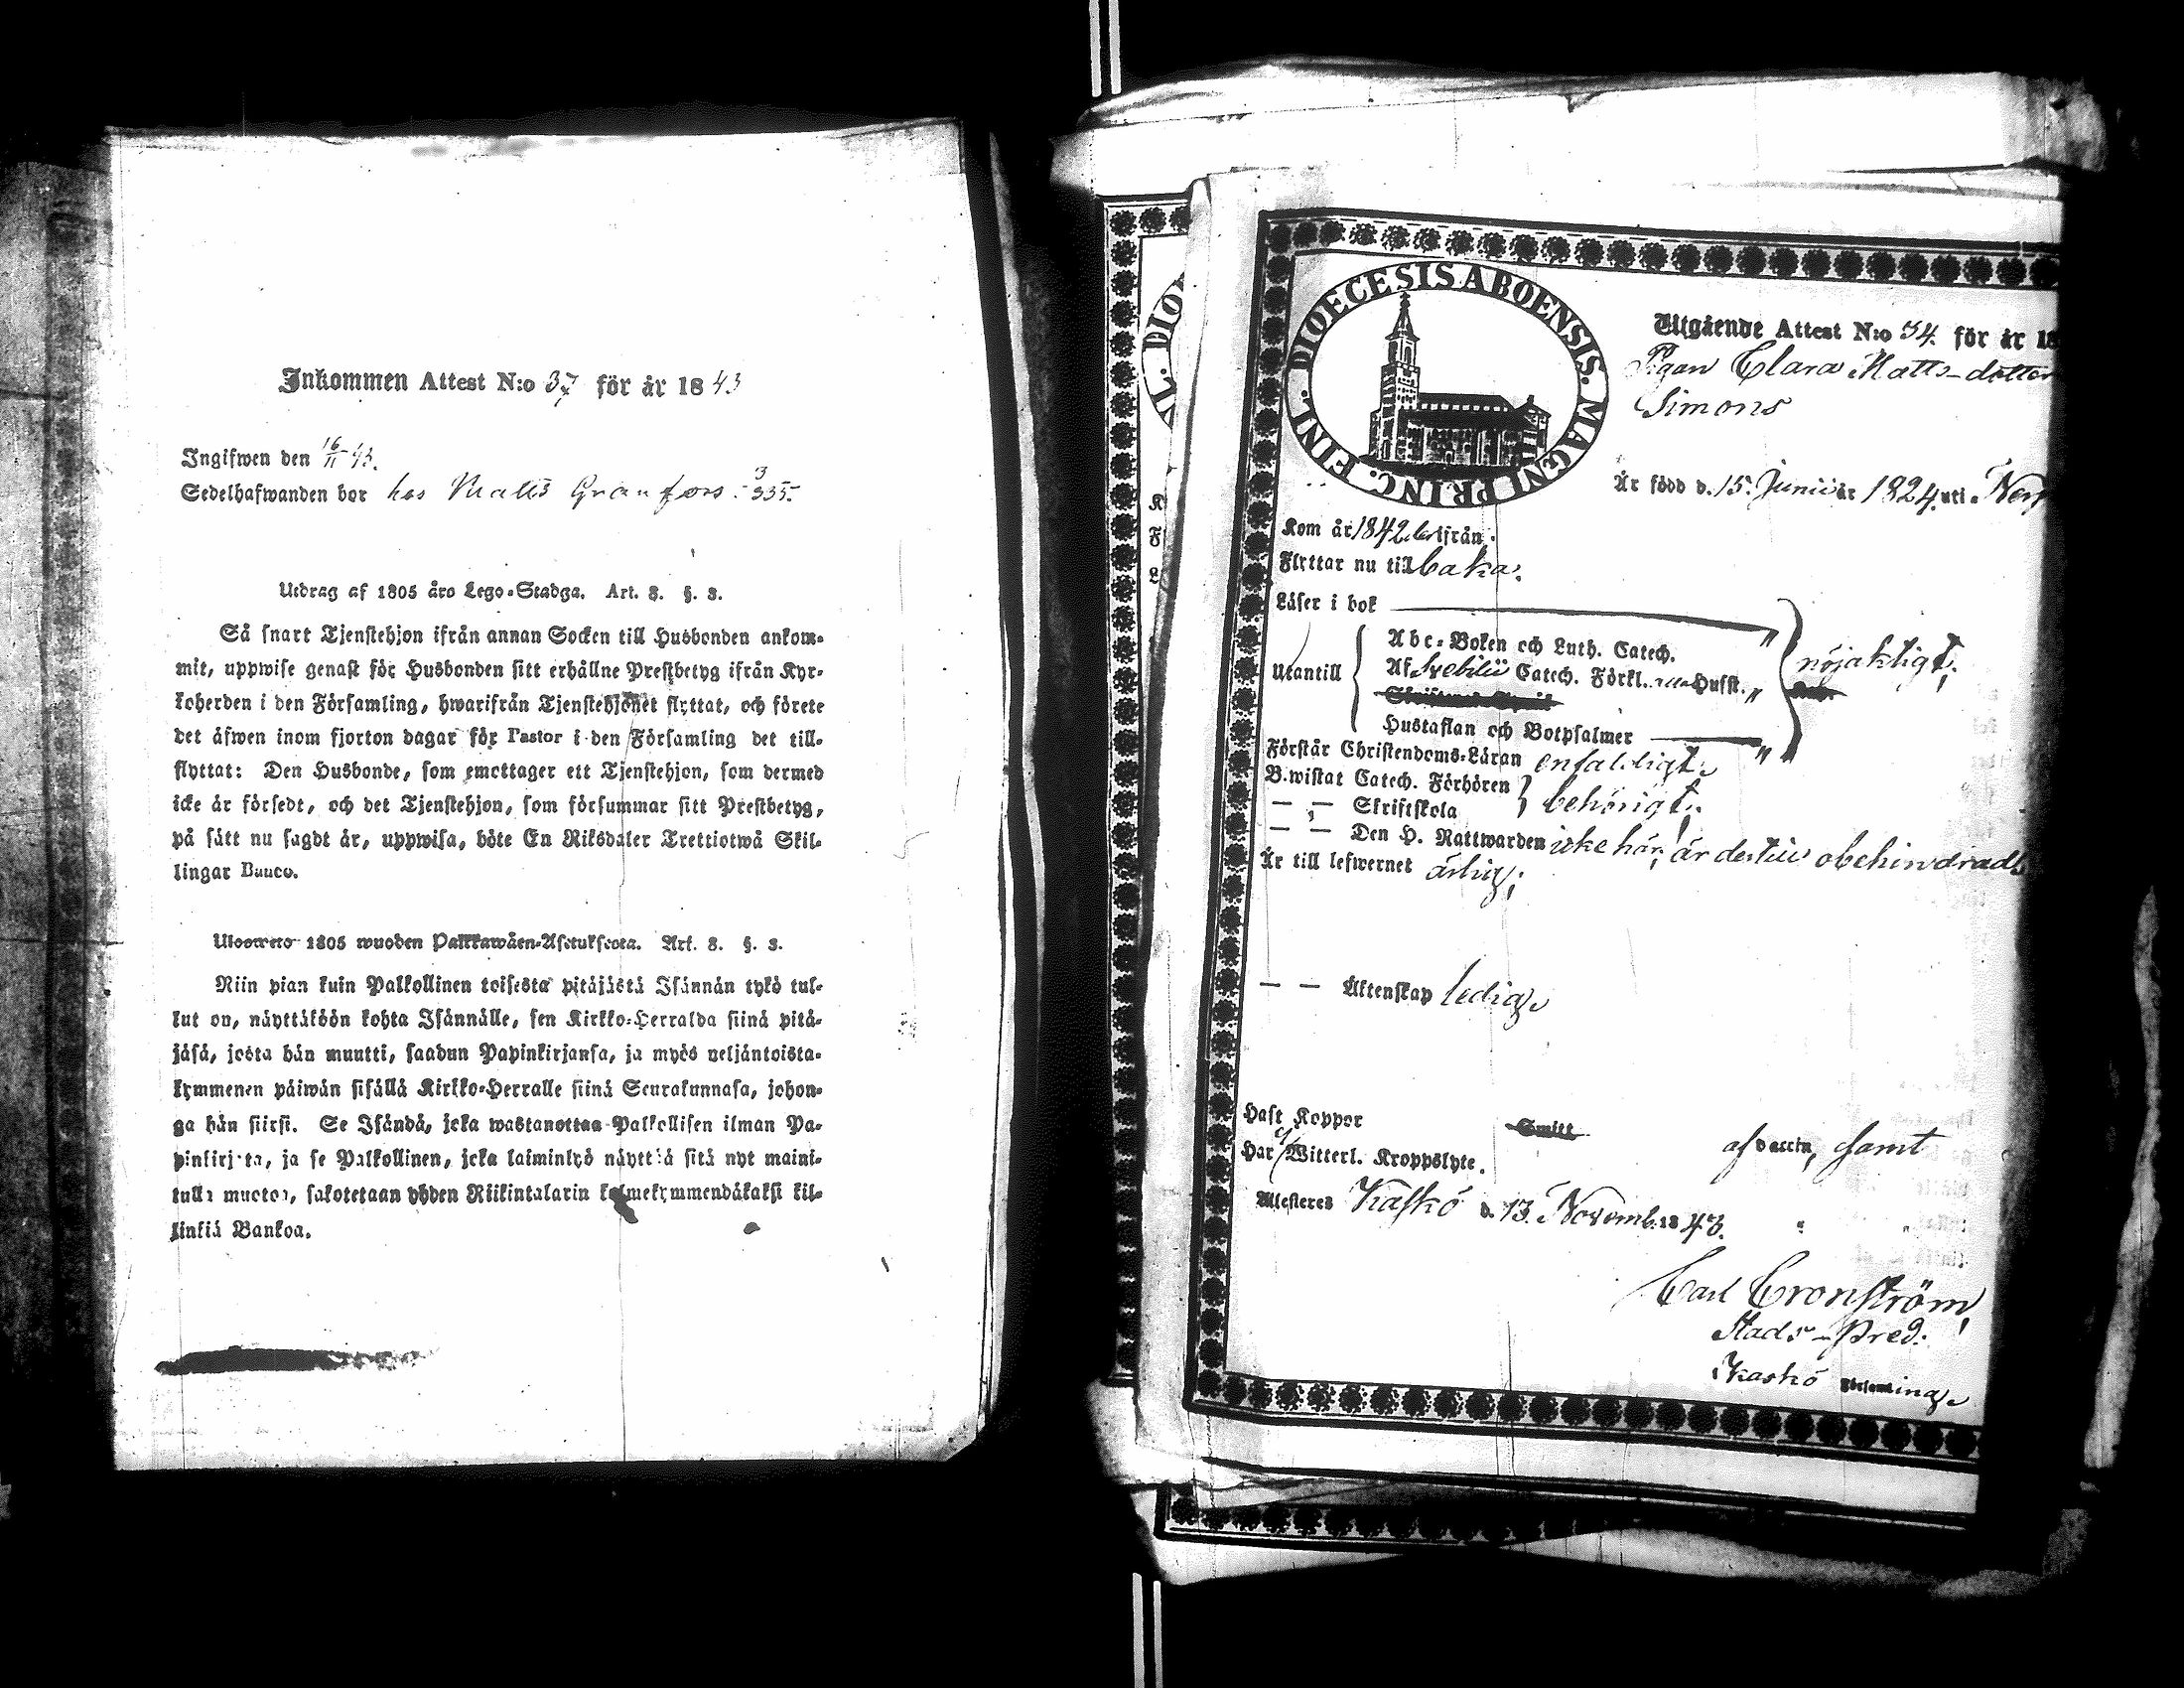 Inkommen Attest N:o 37 för år 1843
Ingifwen den 16/11 43.
Sedelhafwanden bor hos Matts Granfors: 3 335.
Utdrag af 1805 års Lego-Stadga. Art. 8. §. 3.
Så snart Tjenstehjon ifrån annan Socken till Husbonden ankom-
mit, uppwise genast för Husbonden sitt erhållne Prestbetyg ifrån Kyr-
koherden i den Församling, hwarifrån Tjenstehjonet flyttat, och förete
det äfwen inom fjorton dagar för Pastor i den Församling det till-
flyttat: Den Husbonde, som emottager ett Tjenstehjon, som dermed
icke är försedt, och det Tjenstehjon, som försummar sitt Prestbetyg,
på sätt nu sagdt är, uppwisa, böte En Riksdaler Trettiotwå Skil-
lingar Banco.
Ulosweto 1805 wuoden Palkkawäen-Asetuksesta. Art. 8. §. 3.
Niin pian kuin Palkollinen toisesta pitäjästä Isännän tykö tul-
lut on, näyttäköön kohta Isännälle, sen Kirkko-Herralda siinä pitä-
jäsä, josta hän muutti, saadun Papinkirjansa, ja myös neljäntoista-
kymmenen päiwän sisällä Kirkko-Herralle siinä Seurakunnasa, johon-
ga hän siirsi. Se Isändä, joka wastanottaa Palkollisen ilman Pa-
pinkirjata, ja se Palkollinen, joka laiminlyö näyttää sitä nyt maini-
tulla muotoa, sakotetaan yhden Riikintalarin kolmekymmendäkaksi kil-
linkiä Bankoa.
DIOECESIS ABOENSIS. MAGNI PRINC. FINL.
Utgående Attest N:o 54. för år 18
Pigan Clara Matts-dotter
Simons
Är född d. 15. Junii år 1824. uti
Kom år 1842 ifrån
Flyttar nu tillbaka.
Läser i bok
Abc-Boken och Luth. Catech.
Utantill Af Svebilii Catech. Förkl. Hufst. nöjaktigt.
Hustaflan och Botpsalmer
Förstår Christendoms-Läran enfaldigt.
Bewistat Catech. Förhören
— — Skriftskola behörigt.
— — Den H. Nattwarden icke här, är dertill obehindrad
Är till lefwernet ärlig;
— — Äktenskap ledig.
Haft Koppor Smitt af Vaccin, samt
Har ej Witterl. Kroppslyte.
Attesteres Kaskö d. 13. Novemb. 1843.
Carl Cronström,
Stads-Pred.
Kaskö Församling.